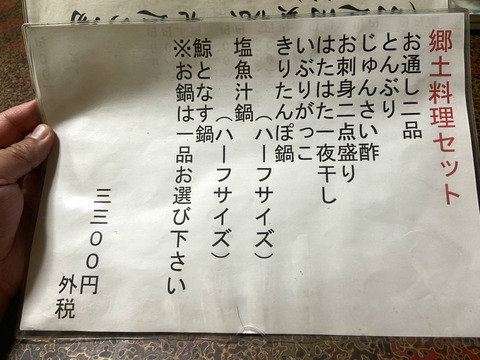 郷土料理セット
お通し二品
とんぶり
じゅんさい酢
お刺身二点盛り
はたはた一夜干し
いぶりがっこ
きりたんぽ鍋
(ハーフサイズ)
塩魚汁鍋
(ハーフサイズ)
鯨となす鍋
※お鍋は一品お選び下さい
三三〇〇円
外税